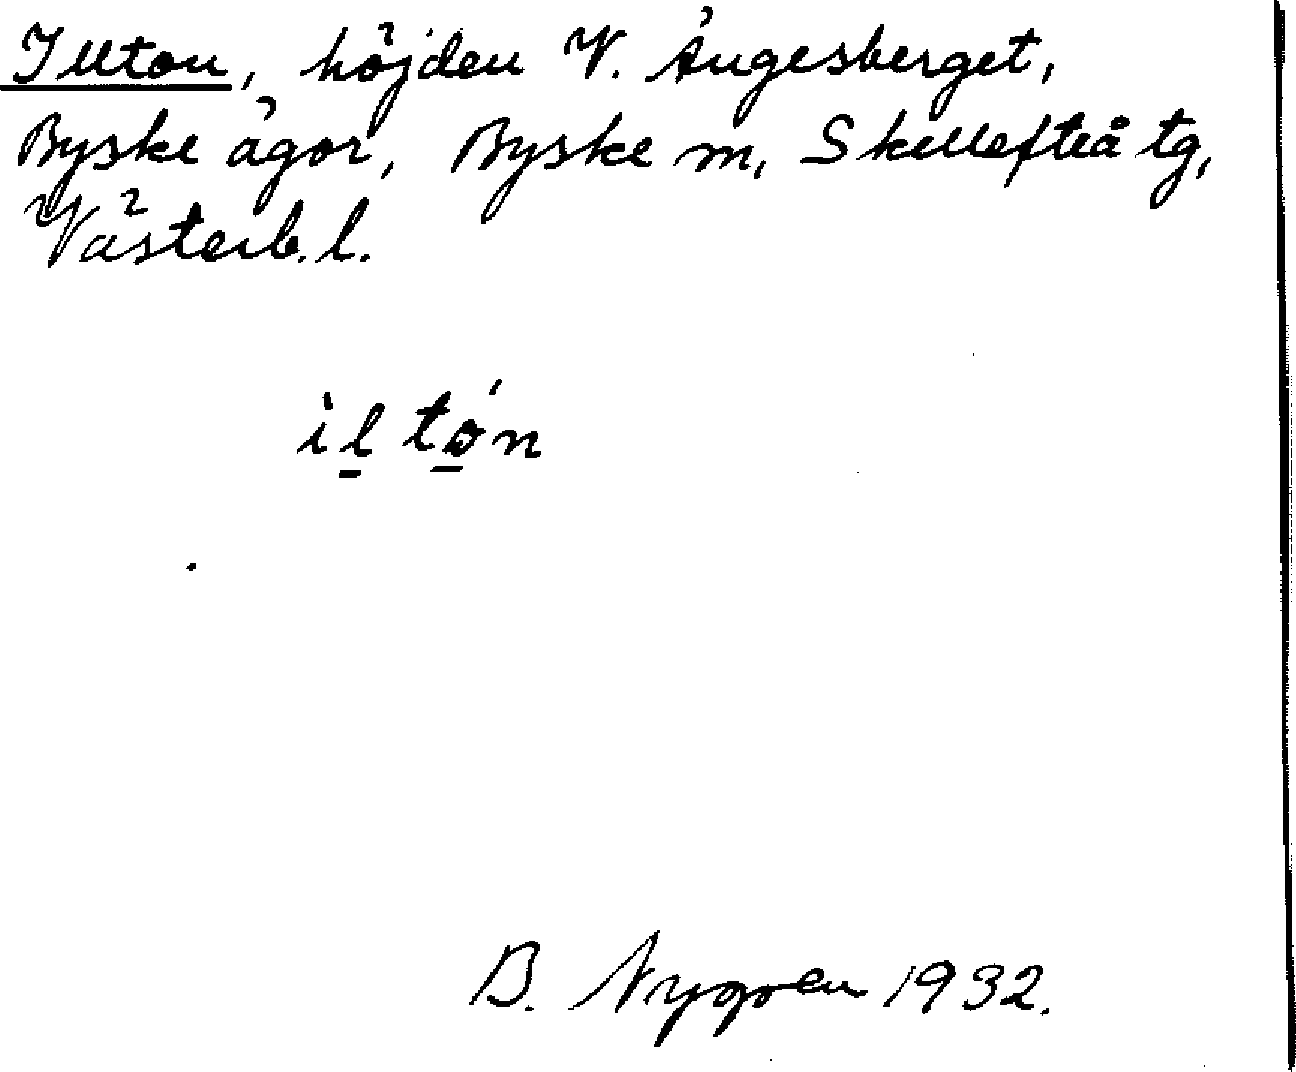 Illton, höjden V. Ängesberget,
Byske ägor, Byske sn, Skellefteå tg,
Västerb. l.
ìl tón
B. Nygren 1932.